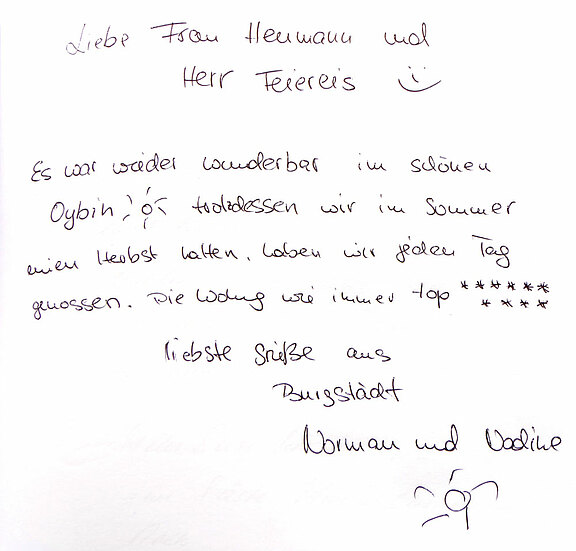 Liebe Frau Heumann und
Herr Feiereis
Es war wieder wunderbar im schönen
Oybin trotzdessen wir im Sommer
einen Herbst hatten, haben wir jeden Tag
genossen. Die Wohng wie immer top ******
****
liebste Grüße aus
Burgstädt
Norman und Nadine